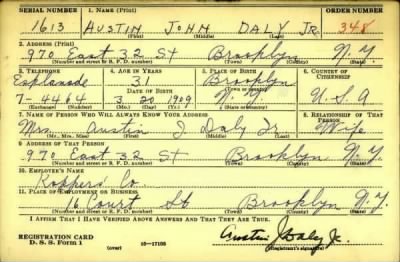 SERIAL NUMBER 1. NAME (Print) ORDER NUMBER
1613 AUSTIN JOHN DALY JR. 348
(First) (Middle) (Last)
2. ADDRESS (Print)
970 East 32 St Brooklyn N.Y.
(Number and street or R. F. D. number) (Town) (County) (State)
3. TELEPHONE 4. AGE IN YEARS 5. PLACE OF BIRTH 6. COUNTRY OF CITIZENSHIP
Esplanade 31 Brooklyn
DATE OF BIRTH (Town or county)
7-4464 3 20 1909 N.Y. U.S.A
(Exchange) (Number) (Mo.) (Day) (Yr.) (State or country)
7. NAME OF PERSON WHO WILL ALWAYS KNOW YOUR ADDRESS 8. RELATIONSHIP OF THAT PERSON
Mrs. Austin J Daly Jr Wife
(Mr., Mrs., Miss) (First) (Middle) (Last)
9. ADDRESS OF THAT PERSON
970 East 32 St Brooklyn N.Y.
(Number and street or R. F. D. number) (Town) (County) (State)
10. EMPLOYER'S NAME
Koppers Co.
11. PLACE OF EMPLOYMENT OR BUSINESS
16 Court St Brooklyn N.Y.
(Number and street or R. F. D. number) (Town) (County) (State)
I AFFIRM THAT I HAVE VERIFIED ABOVE ANSWERS AND THAT THEY ARE TRUE.
REGISTRATION CARD
D. S. S. Form 1 (over) 16-17105 Austin J Daly Jr.
(Registrant's signature)